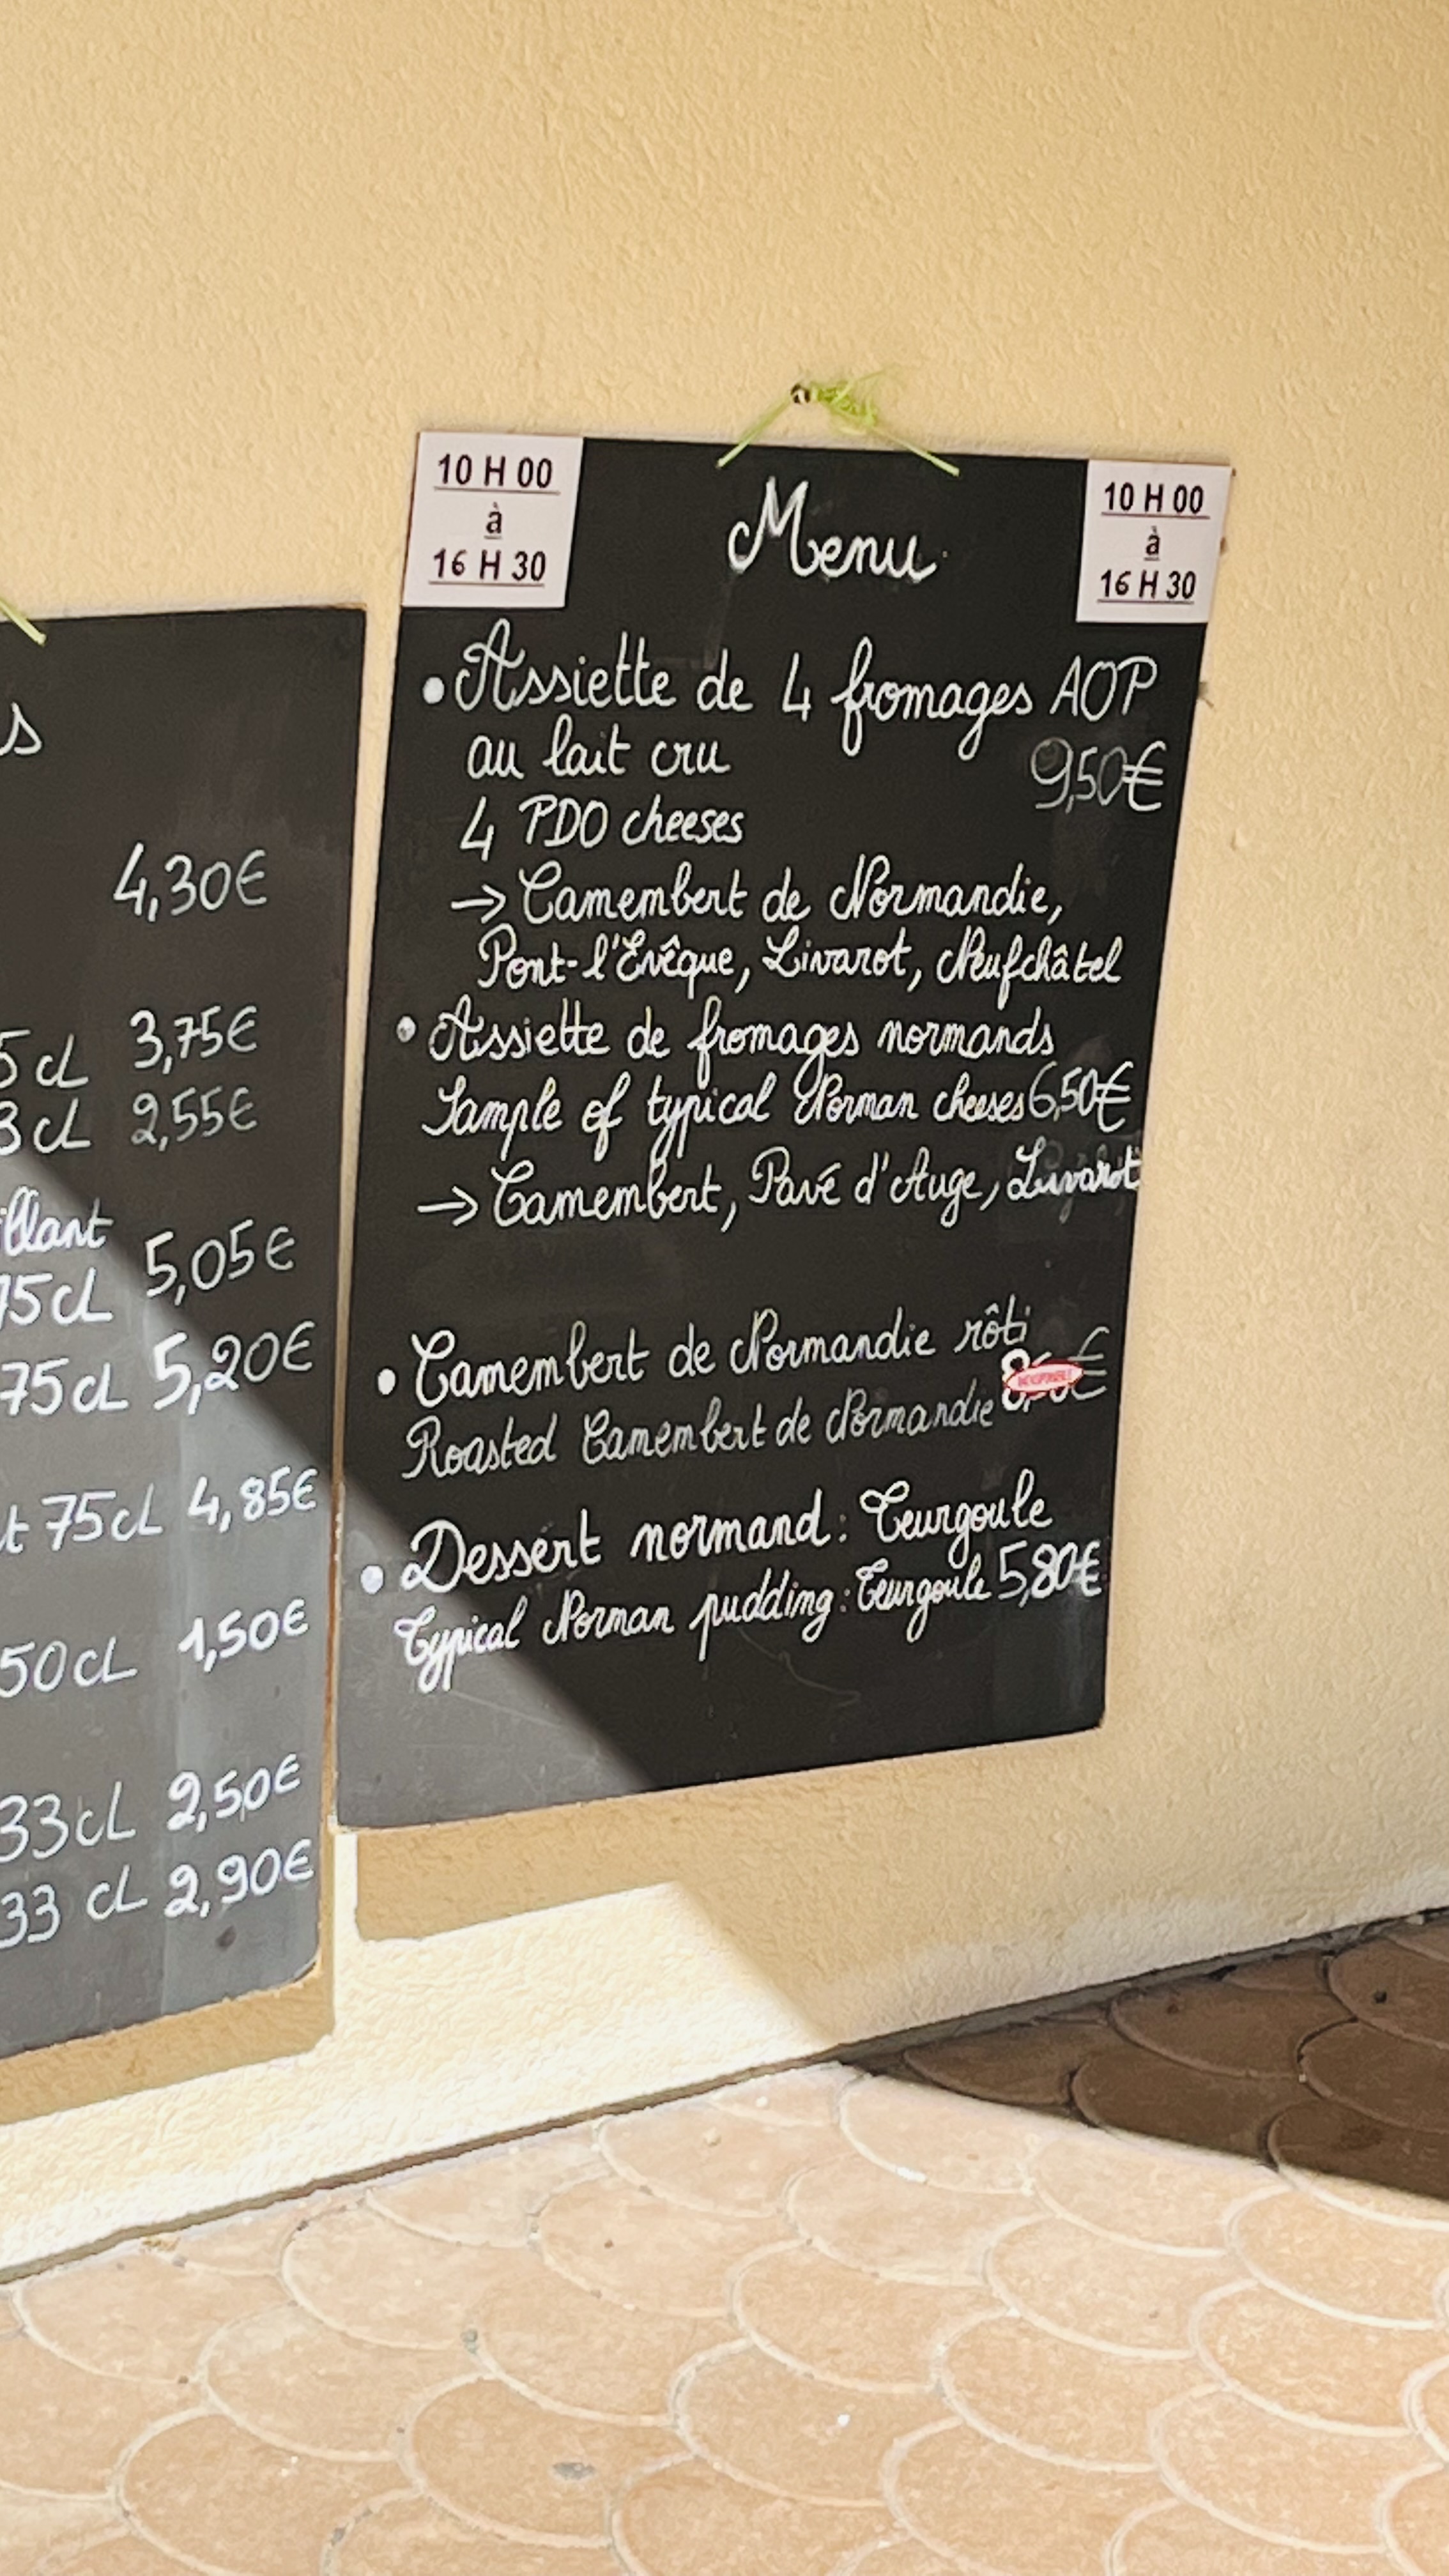 s
4,30€
5 cl 3,75€
3 cl 2,55€
illant
75cl 5,05€
75cl 5,20€
t 75cl 4,85€
50cl 1,50€
33cl 2,50€
33 cl 2,90€
10 H 00
à
16 H 30
Menu
10 H 00
à
16 H 30
• Assiette de 4 fromages AOP
au lait cru 9,50€
4 PDO cheeses
→ Camembert de Normandie,
Pont-l'Evêque, Livarot, Neufchâtel
• Assiette de fromages normands
Sample of typical Norman cheeses 6,50€
→ Camembert, Pavé d'Auge, Livarot
• Camembert de Normandie rôti
Roasted Camembert de Normandie
INDISPONIBLE
• Dessert normand : Teurgoule
Typical Norman pudding : Teurgoule 5,80€